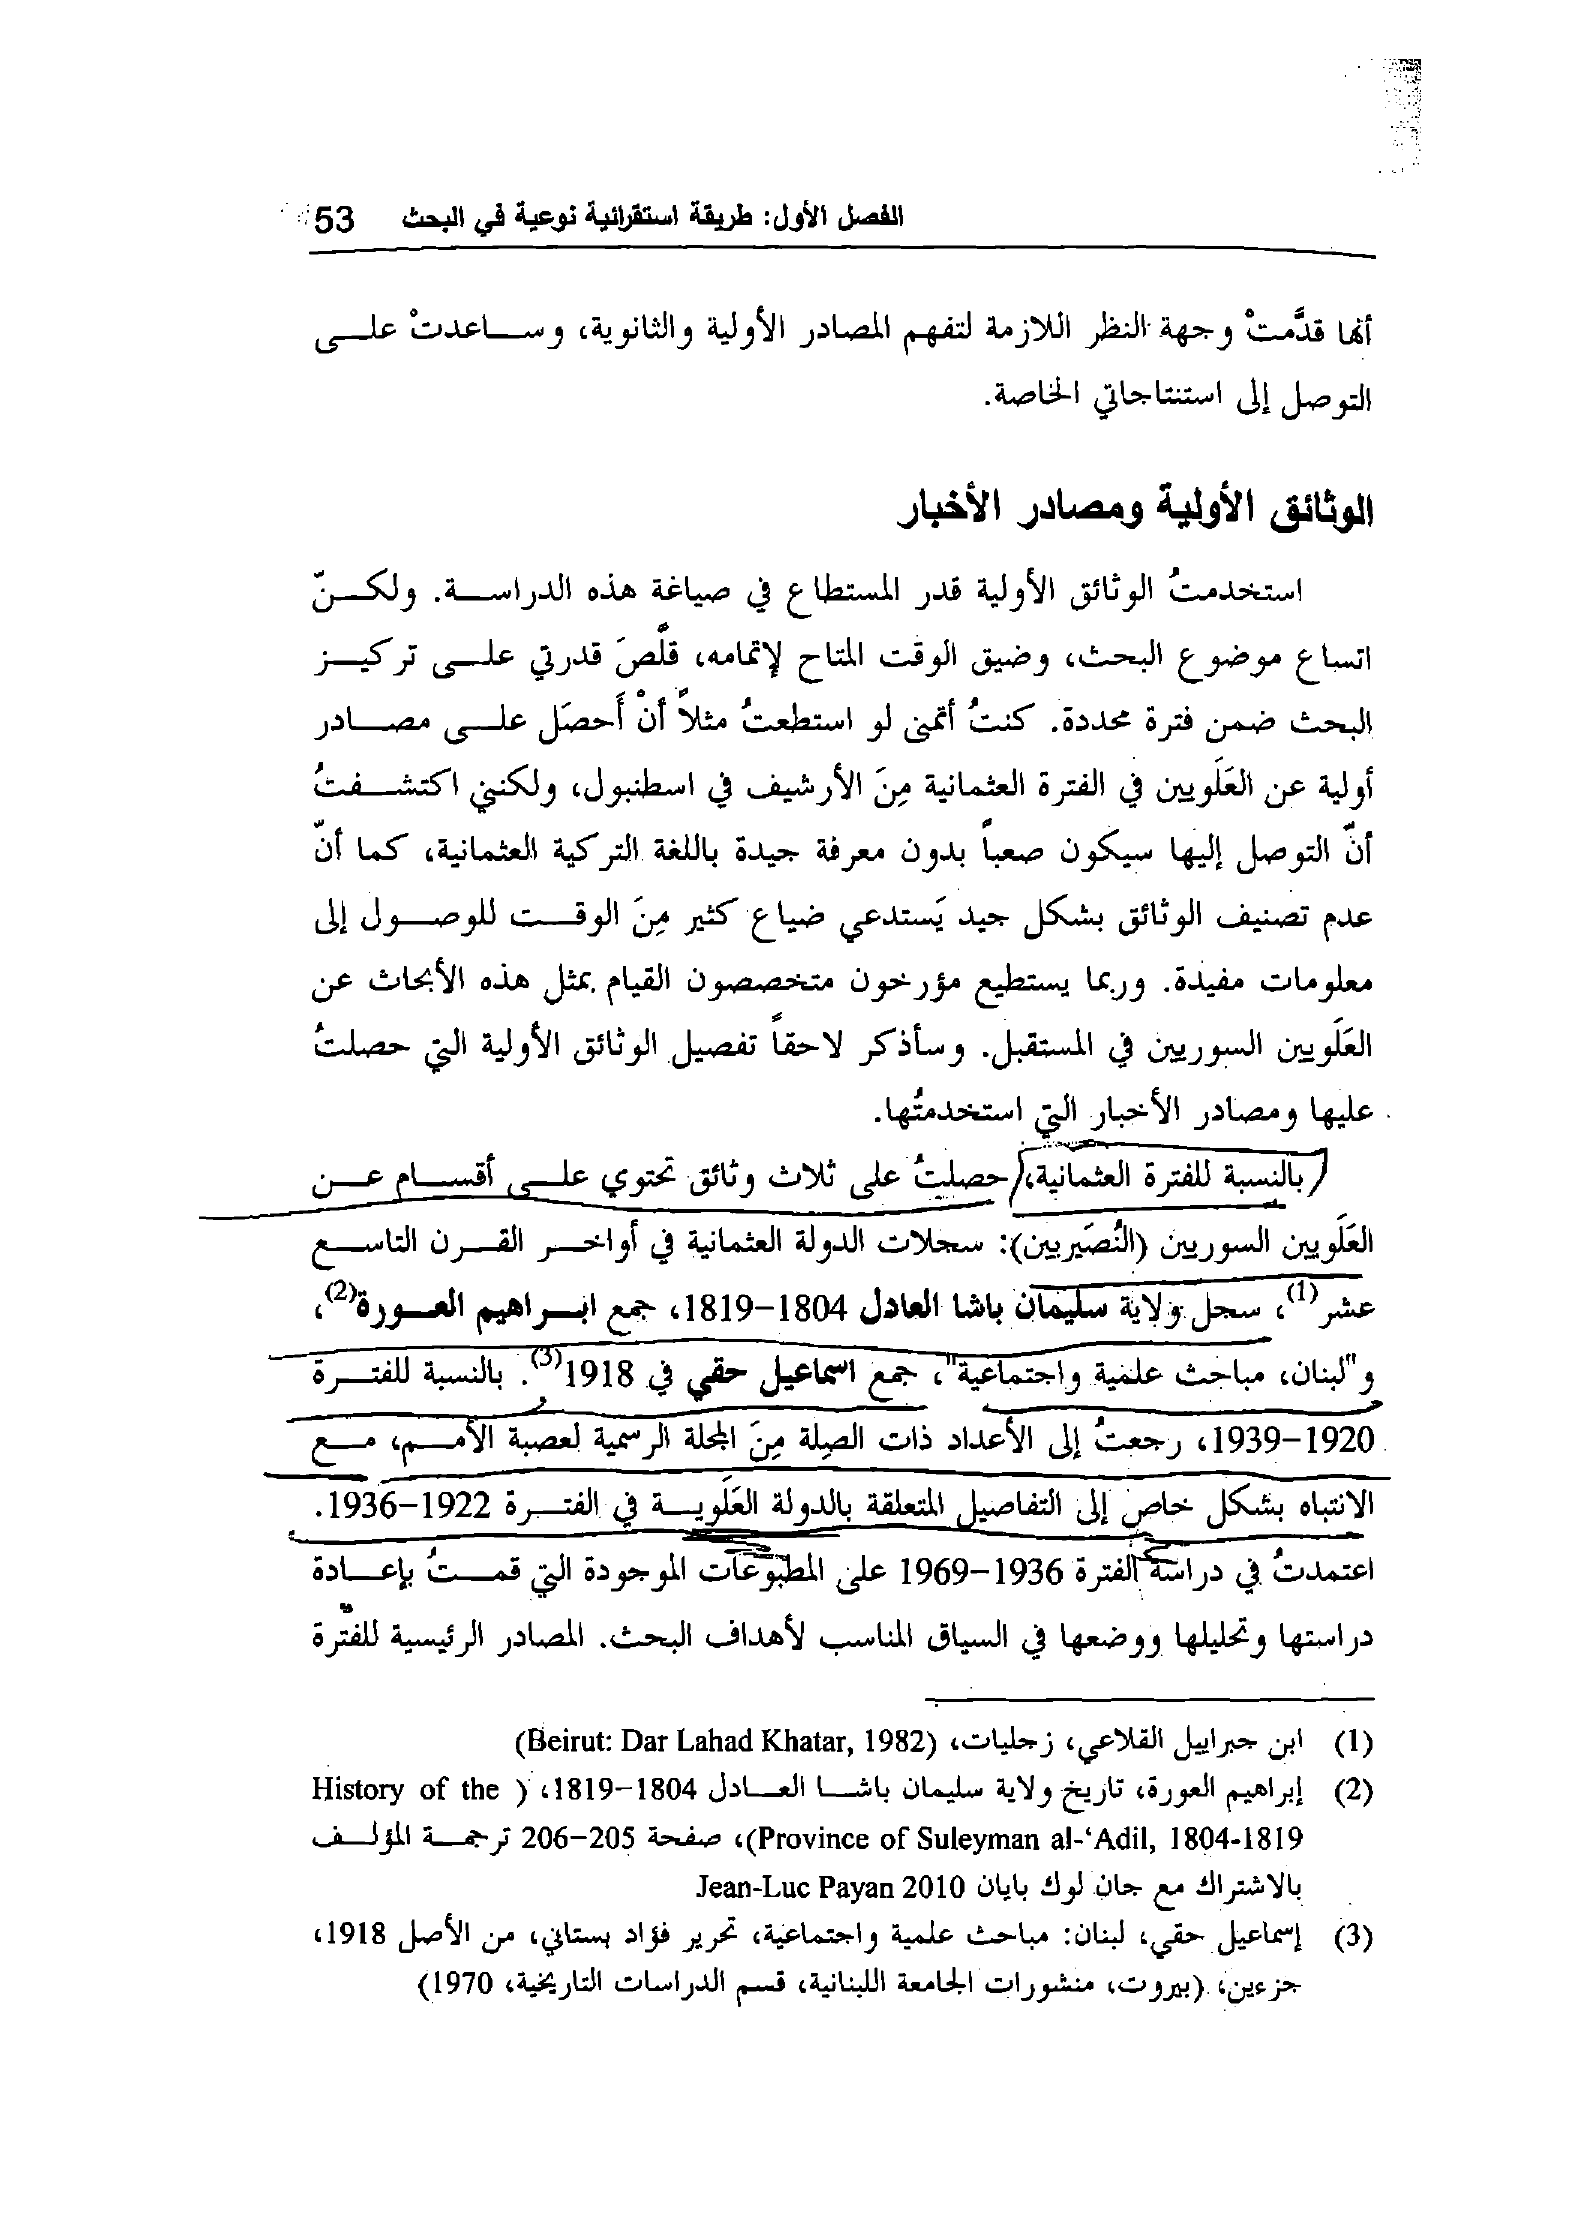 الفصل الأول: طريقة استقرائية نوعية في البحث 53
أنها قدَّمتْ وجهة النظر اللازمة لتفهم المصادر الأولية والثانوية، وساعدتْ على
التوصل إلى استنتاجاتي الخاصة.
الوثائق الأولية ومصادر الأخبار
استخدمتُ الوثائق الأولية قدر المستطاع في صياغة هذه الدراسة. ولكنّ
اتساع موضوع البحث، وضيق الوقت المتاح لإتمامه، قلَّصَ قدرتي على تركيز
البحث ضمن فترة محددة. كنتُ أتمنى لو استطعتُ مثلاً أنْ أَحصَل على مصادر
أولية عن العَلَويين في الفترة العثمانية مِنَ الأرشيف في اسطنبول، ولكنني اكتشفتُ
أنّ التوصل إليها سيكون صعباً بدون معرفة جيدة باللغة التركية العثمانية، كما أنّ
عدم تصنيف الوثائق بشكل جيد يَستدعي ضياع كثير مِنَ الوقت للوصول إلى
معلومات مفيدة. وربما يستطيع مؤرخون متخصصون القيام بمثل هذه الأبحاث عن
العَلَويين السوريين في المستقبل. وسأذكر لاحقاً تفصيل الوثائق الأولية التي حصلتُ
عليها ومصادر الأخبار التي استخدمتُها.
بالنسبة للفترة العثمانية، حصلتُ على ثلاث وثائق تحتوي على أقسام عن
العَلَويين السوريين (النُصَيريين): سجلات الدولة العثمانية في أواخر القرن التاسع
عشر(1)، سجل ولاية سليمان باشا العادل 1804-1819، جمع ابراهيم العورة(2)،
و"لبنان، مباحث علمية واجتماعية"، جمع اسماعيل حقي في 1918(3). بالنسبة للفترة
1920-1939، رجعتُ إلى الأعداد ذات الصِلة مِنَ المجلة الرسمية لعصبة الأمم، مع
الانتباه بشكل خاص إلى التفاصيل المتعلقة بالدولة العَلَوية في الفترة 1922-1936.
اعتمدتُ في دراسة الفترة 1936-1969 على المطبوعات الموجودة التي قمتُ بإعادة
دراستها وتحليلها ووضعها في السياق المناسب لأهداف البحث. المصادر الرئيسية للفترة
(1) ابن جبرابيل القلاعي، زجليات، (Beirut: Dar Lahad Khatar, 1982)
(2) إبراهيم العورة، تاريخ ولاية سليمان باشا العادل 1804-1819، ( History of the
Province of Suleyman al-‘Adil, 1804-1819)، صفحة 205-206 ترجمة المؤلف
بالاشتراك مع جان لوك بايان Jean-Luc Payan 2010
(3) إسماعيل حقي، لبنان: مباحث علمية واجتماعية، تحرير فؤاد بستاني، من الأصل 1918،
جزءين، (بيروت، منشورات الجامعة اللبنانية، قسم الدراسات التاريخية، 1970)